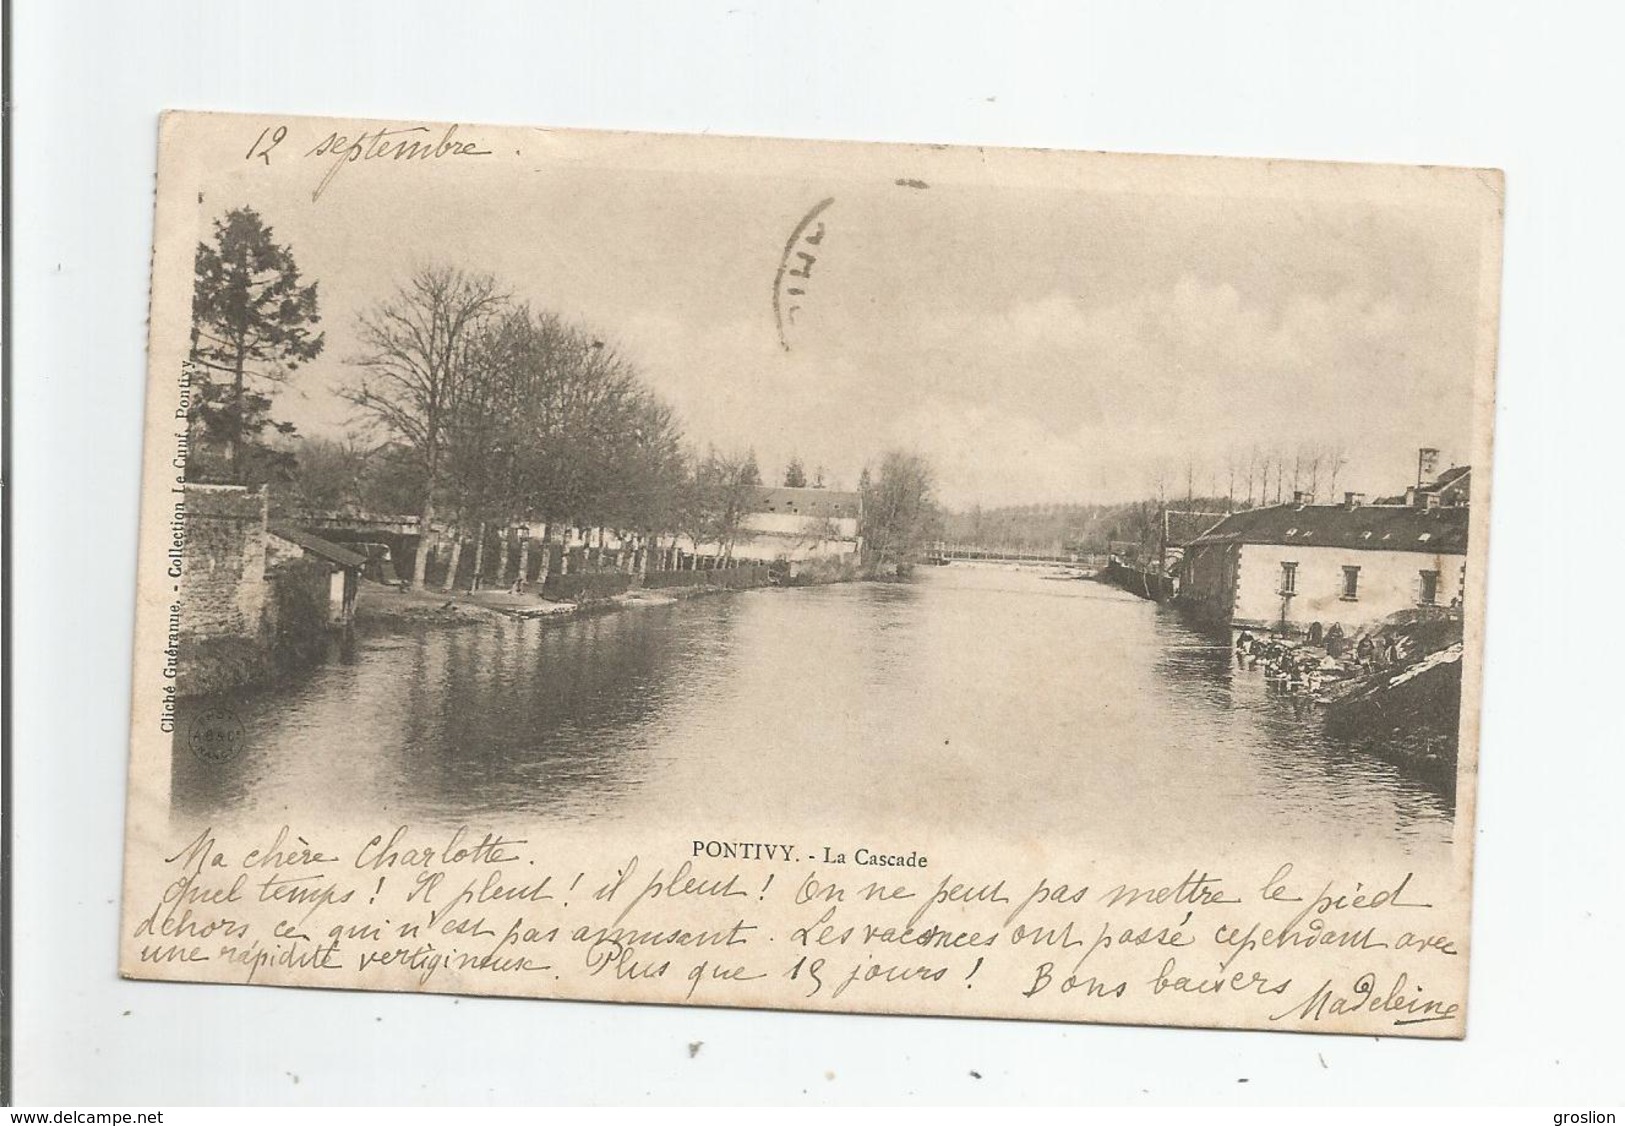 12 septembre.
Cliché Guéranne. - Collection Le Cunf, Pontivy
PONTIVY. - La Cascade
Ma chère Charlotte.
Quel temps ! Il pleut ! il pleut ! On ne peut pas mettre le pied
dehors, ce qui n'est pas amusant. Les vacances ont passé cependant avec
une rapidité vertigineuse. Plus que 15 jours ! Bons baisers
Madeleine
www.delcampe.net
groslion